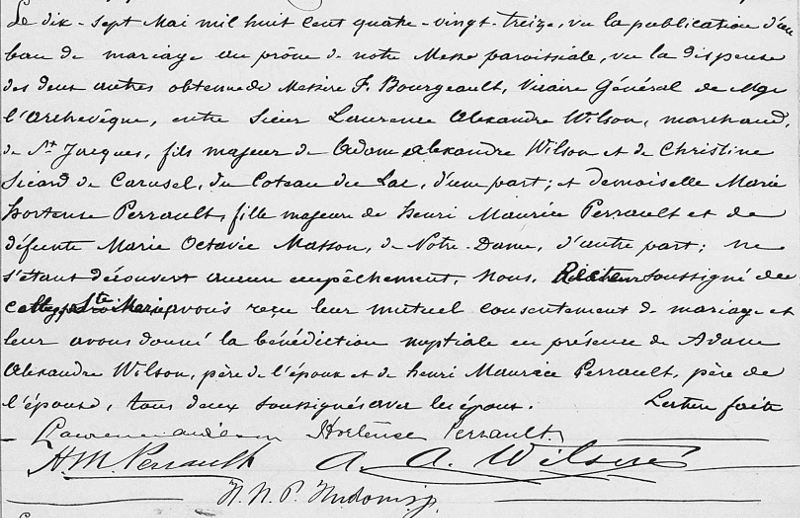 Le dix-sept Mai mil huit cent quatre-vingt-treize, vu la publication d'un
ban de mariage au prône de notre Messe paroissiale, vu la dispense
des deux autres obtenue de Messire F. Bourgeault, Vicaire Général de Mgr
l'Archevêque, entre Sieur Lawrence Alexandre Wilson, marchand,
de St Jacques, fils majeur de Adam Alexandre Wilson et de Christine
Sicard de Carufel, du Coteau du Lac, d'une part; et demoiselle Marie
Hortense Perrault, fille majeure de Henri Maurice Perrault et de
défunte Marie Octavie Masson, de Notre-Dame, d'autre part; ne
s'étant découvert aucun empêchement, Nous, Recteur soussigné du
College Ste Marie, avons reçu leur mutuel consentement de mariage et
leur avons donné la bénédiction nuptiale en présence de Adam
Alexandre Wilson, père de l'époux et de Henri Maurice Perrault, père de
l'épouse, tous deux soussignés avec les époux. Lecture faite
Hortense Perrault
H. M. Perrault A. A. Wilson